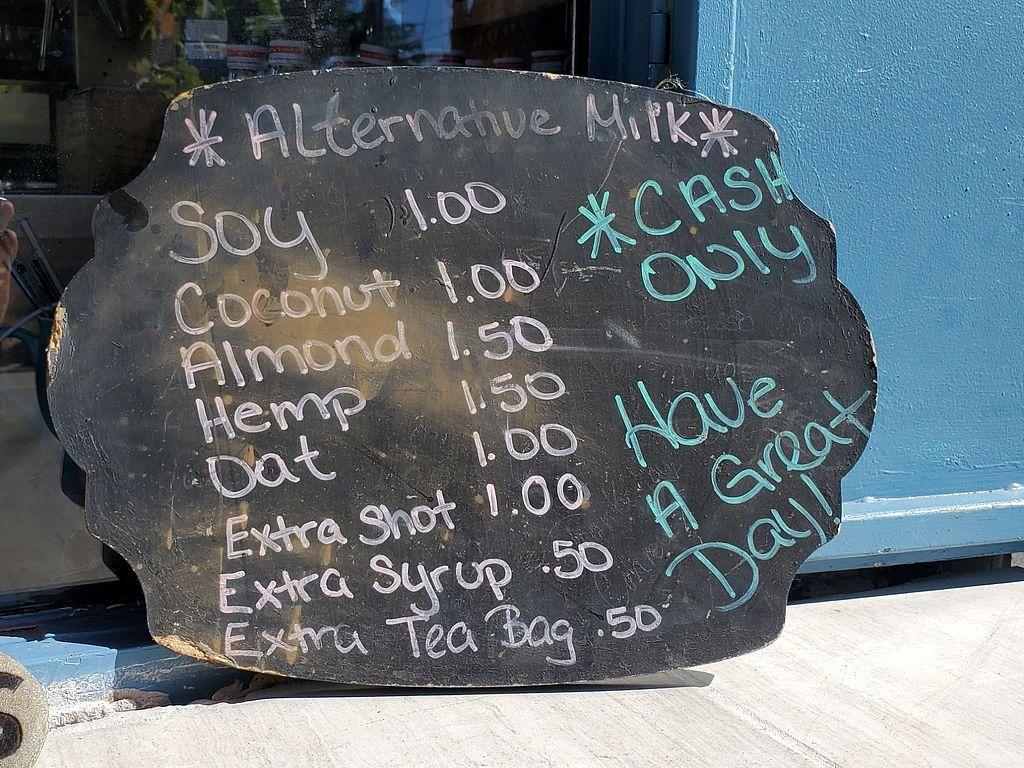 * Alternative Milk *
SOY 1.00
Coconut 1.00
Almond 1.50
Hemp 1.50
Oat 1.00
Extra Shot 1.00
Extra Syrup .50
Extra Tea Bag .50
* CASH
ONLY
Have
A Great
Day!